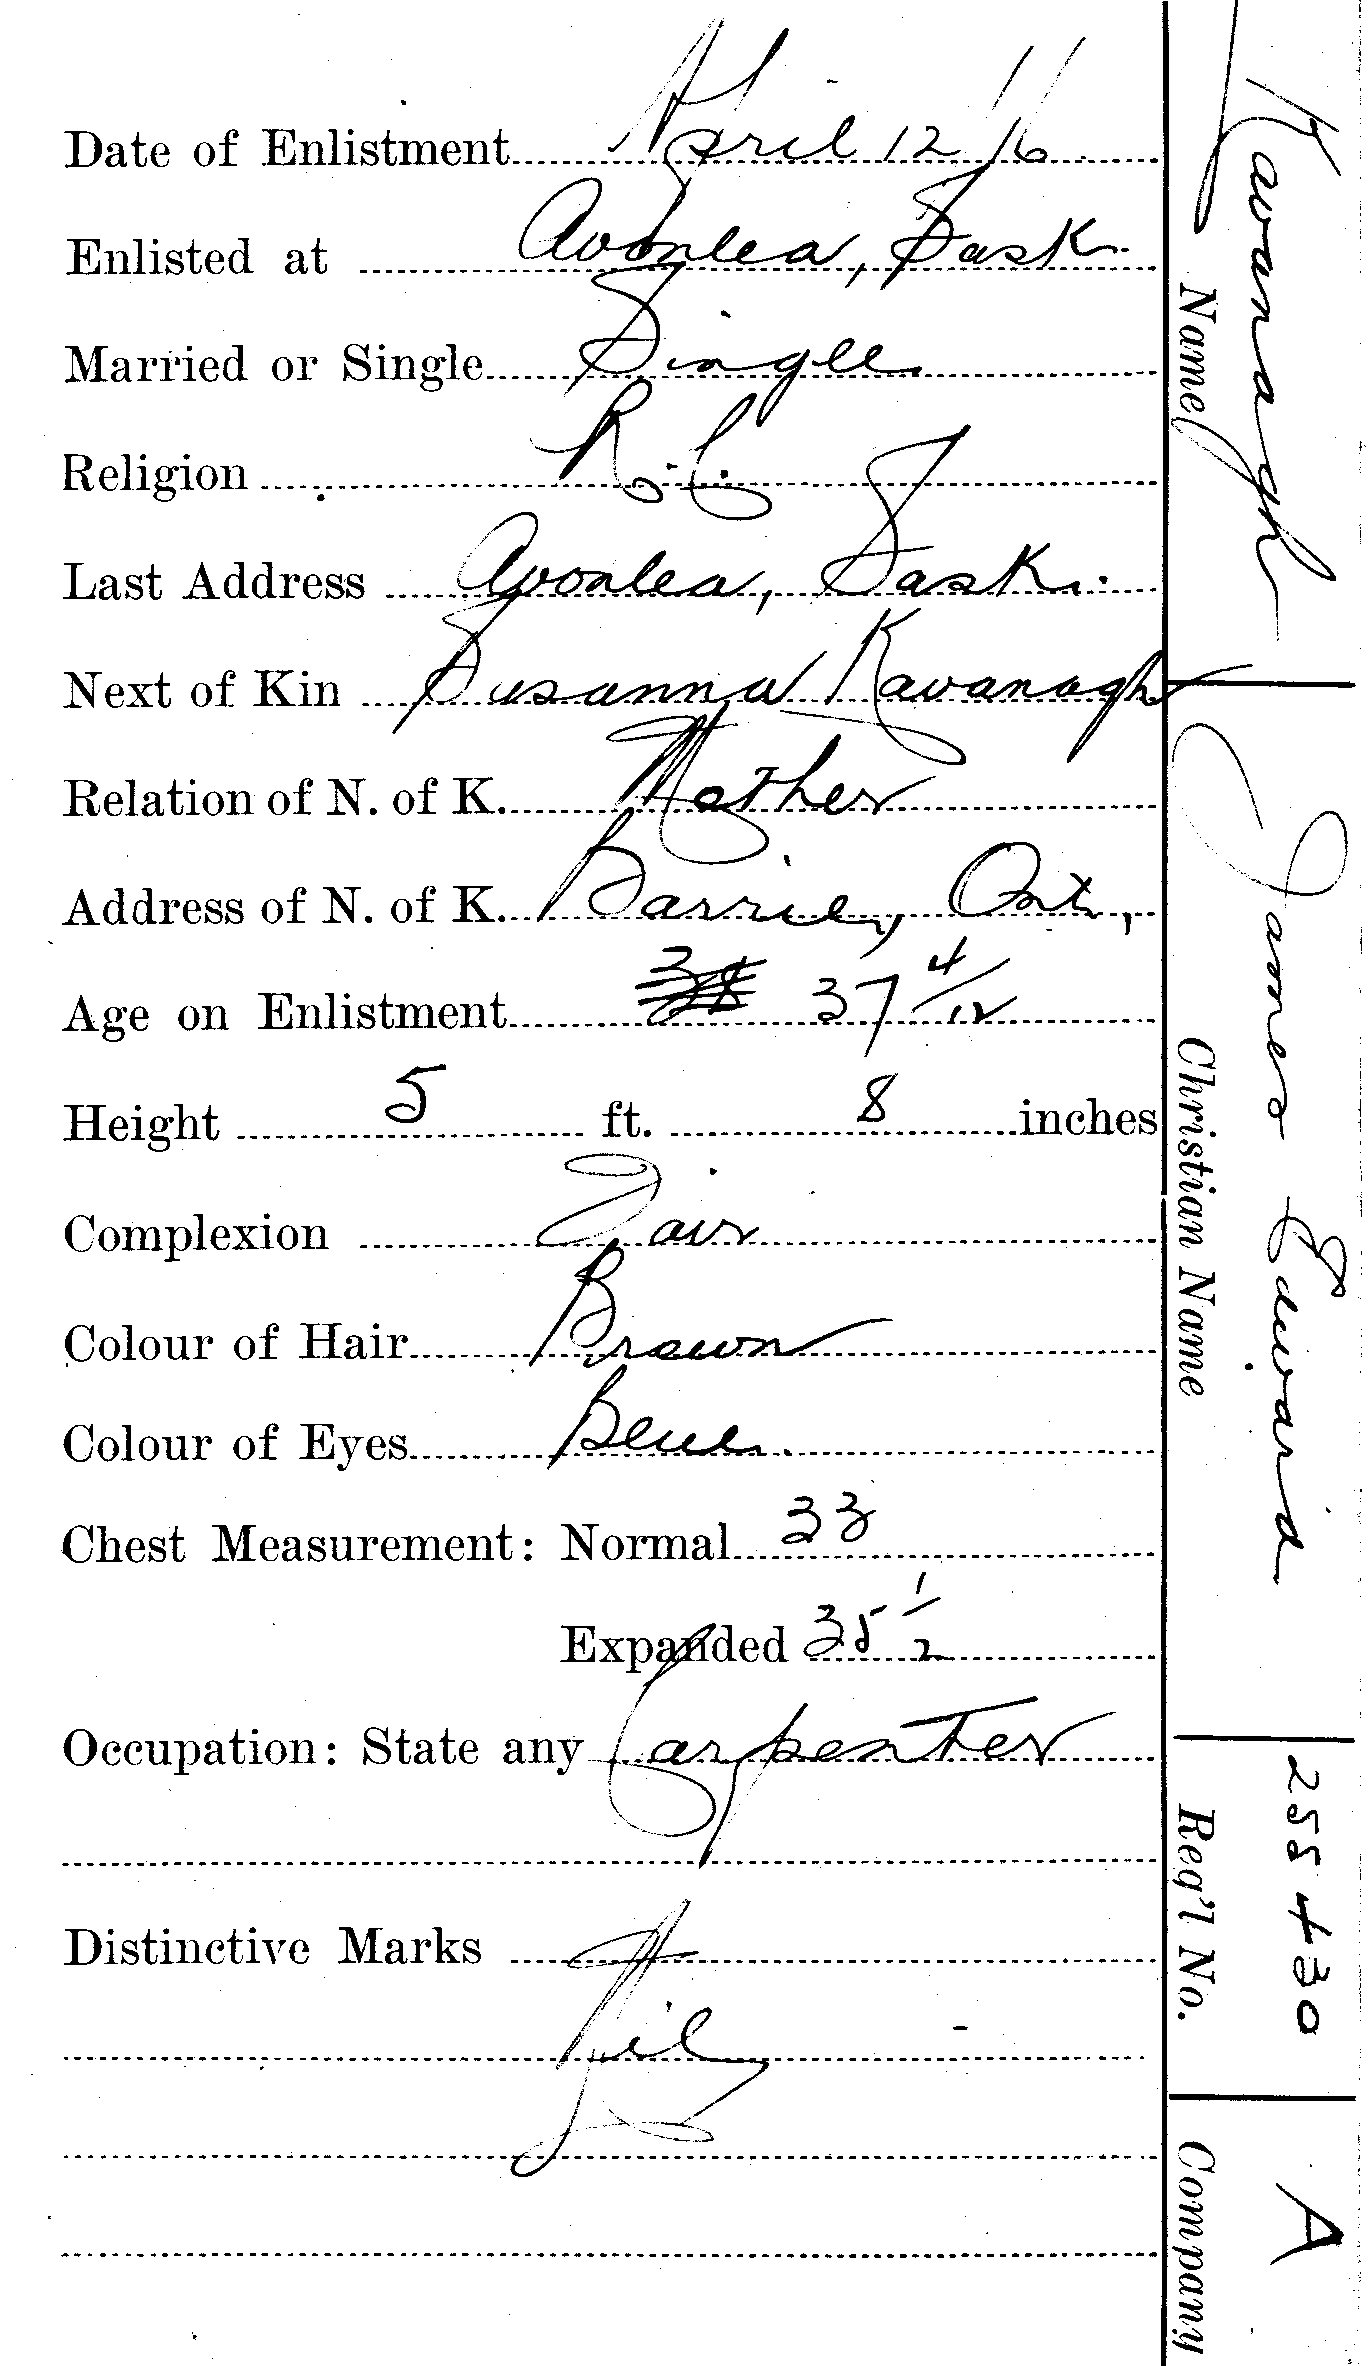 Date of Enlistment April 12/16
Enlisted at Avonlea, Sask.
Married or Single Single
Religion R.C.
Last Address Avonlea, Sask.
Next of Kin Susanna Kavanagh
Relation of N. of K. Mother
Address of N. of K. Barrie, Ont.,
Age on Enlistment 38 37 4/12
Height 5 ft. 8 inches
Complexion Fair
Colour of Hair Brown
Colour of Eyes Blue.
Chest Measurement: Normal 33
Expanded 35 1/2
Occupation: State any Carpenter
Distinctive Marks
Nil
Kavanagh
Name
James Edward
Christian Name
255430
Reg'l No.
A
Company